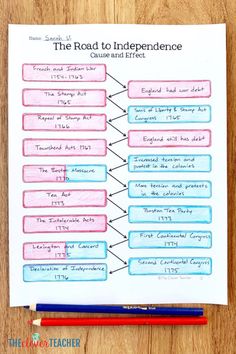 Name: Sarah V.
The Road to Independence
Cause and Effect
French and Indian War
1754-1763
England had war debt
The Stamp Act
1765
Sons of Liberty & Stamp Act
Congress 1765
Repeal of Stamp Act
1766
England still has debt
Townshend Acts 1767
Increased tension and
protest in the colonies
The Boston Massacre
1770
More tension and protests
in the colonies
Tea Act
1773
Boston Tea Party
1773
The Intolerable Acts
1774
First Continental Congress
1774
Lexington and Concord
1775
Second Continental Congress
1775
Declaration of Independence
1776
THE clever TEACHER